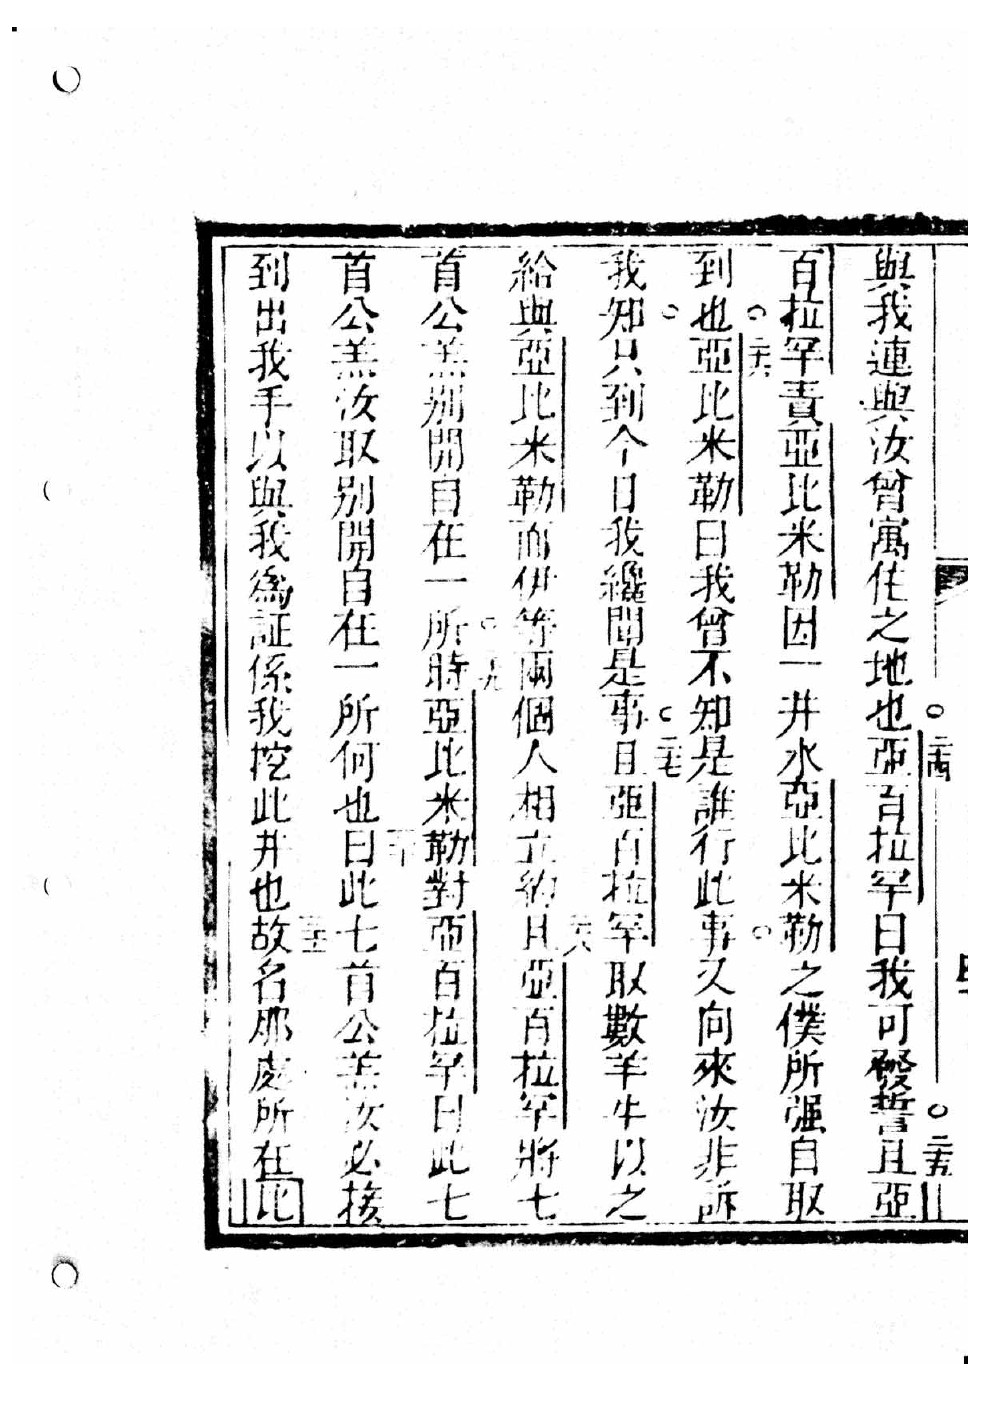 與我連與汝曾寓住之地也○二十四亞百拉罕曰我可發誓○二十五且亞
百拉罕責亞比米勒因一井水亞比米勒之僕所强自取
到也○二十六亞比米勒曰我曾不知是誰行此事○又向來汝非訴
我知○只到今日我纔聞是事○二十七且亞百拉罕取數羊牛以之
給與亞比米勒而伊等兩個人相立約二十八且亞百拉罕將七
首公羔別開自在一所○二十九時亞比米勒對亞百拉罕曰此七
首公羔汝取別開自在一所何也三十曰此七首公羔汝必接
到出我手以與我為証係我挖此井也三十一故名那處所在比